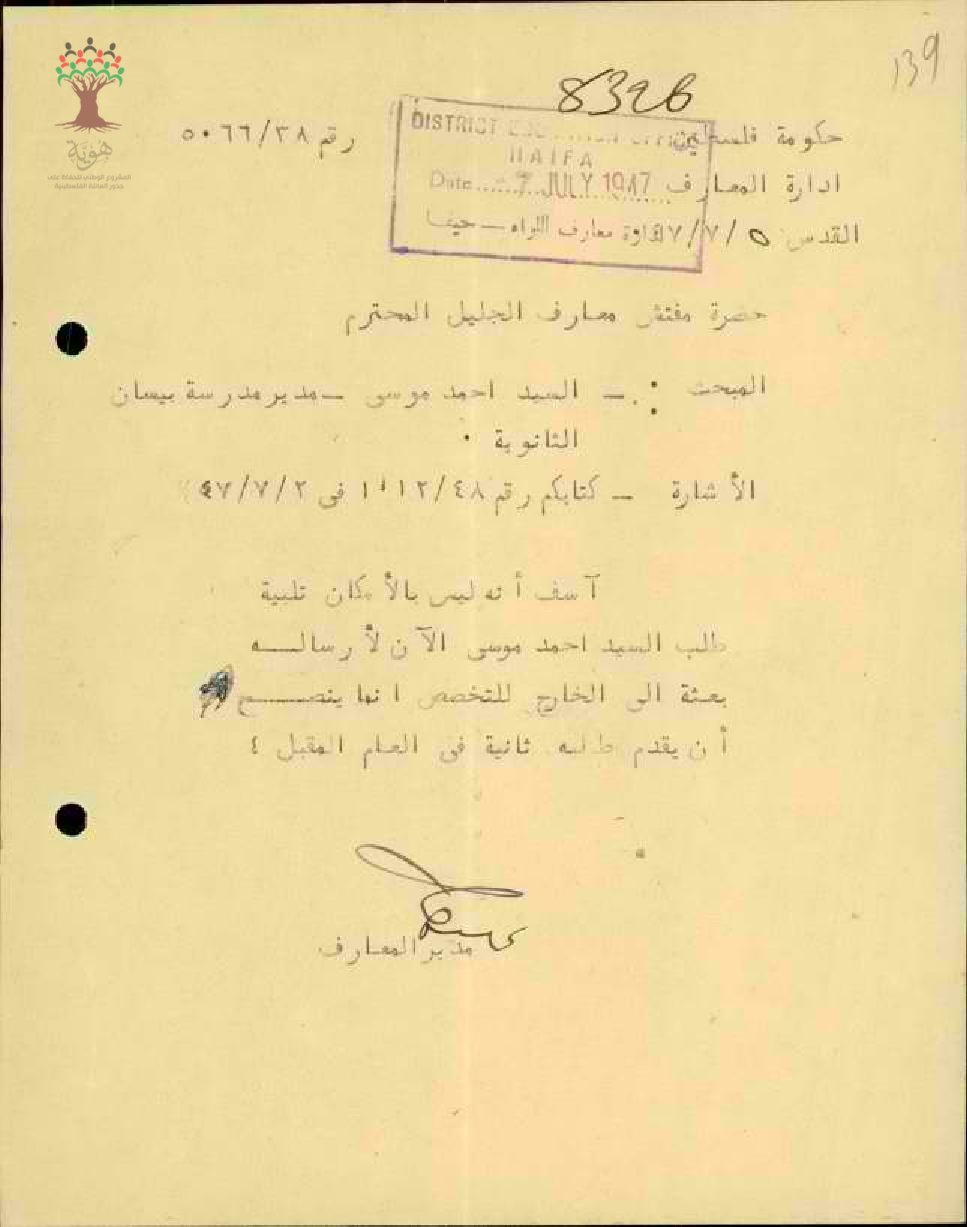 139
8326
حكومة فلسطين
رقم ٥٠٦٦/٣٨
DISTRICT EDUCATION OFFICE
HAIFA
ادارة المعارف
Date 7 JULY 1947
القدس ٥/٧/٤٧
ادارة معارف اللواء – حيفا
هوية
المشروع الوطني للحفاظ على
جذور العائلة الفلسطينية
حضرة مفتش معارف الجليل المحترم
المبحث : – السيد احمد موسى – مدير مدرسة بيسان
الثانوية ٠
الأشارة – كتابكم رقم ١١٢/٤٨ فى ٤٧/٧/٢
آسف أنه ليس بالأمكان تلبية
طلب السيد احمد موسى الآن لأرساله
بعثة الى الخارج للتخصص انما ينصح
أن يقدم طلبه ثانية فى العام المقبل ٤
مدير المعارف